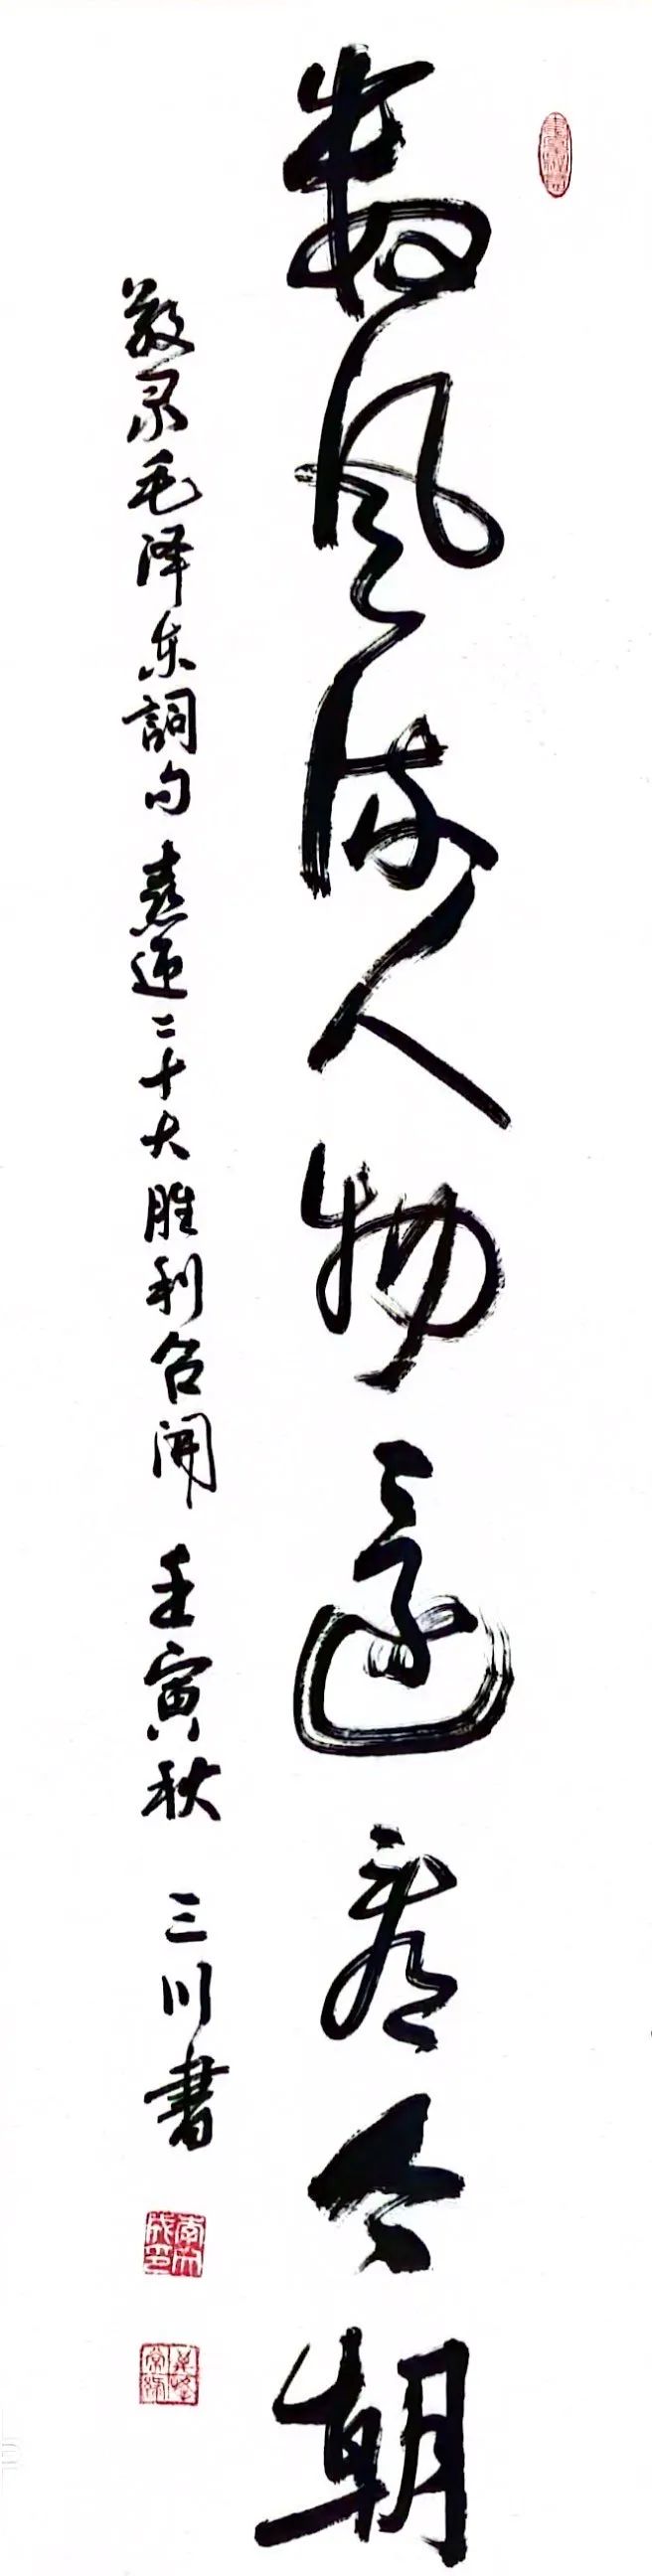 数风流人物還看今朝
敬录毛泽东詞句 喜迎二十大胜利召開 壬寅秋 三川書